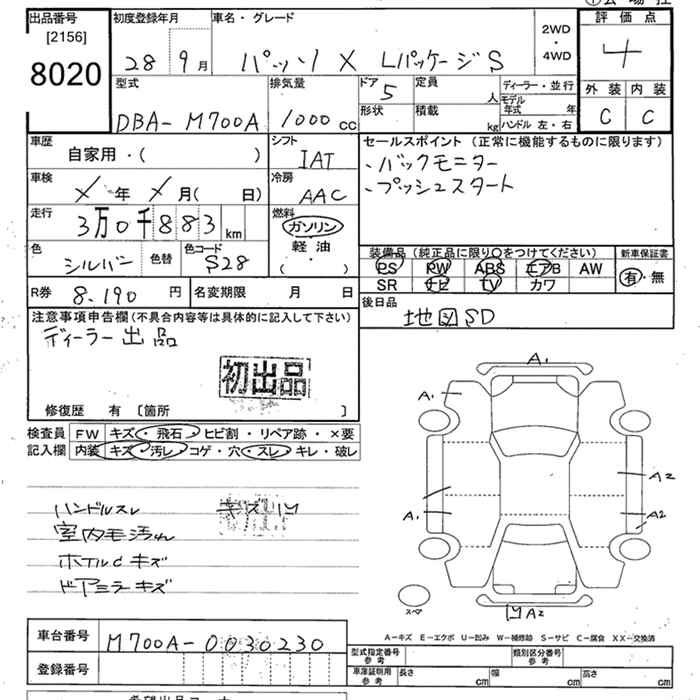 出品番号
[2156]
8020
初度登録年月
28 9月
車名・グレード
パッソ X LパッケージS
2WD
・
4WD
評価点
4
外装 内装
C C
型式
DBA-M700A
排気量
1000 cc
ドア 5
形状
定員 人
積載 kg
ディーラー・並行
モデル年式 年
ハンドル 左・右
車歴
自家用・( )
シフト
IAT
車検
年 月( 日)
冷房
AAC
走行
3万0千883 km
燃料
ガソリン
軽油
( ・ )
色
シルバー
色替
色コード
S28
R券 8.190 円
名変期限 月 日
セールスポイント (正常に機能するものに限ります)
・バックモニター
・プッシュスタート
装備品(純正品に限り〇をつけてください)
PS PW ABS エアB AW
SR ナビ TV カワ
新車保証書
有・無
後日品
地図SD
注意事項申告欄(不具合内容等は具体的に記入して下さい)
ディーラー出品
初出品
修復歴 有 [箇所 ]
検査員記入欄
FW キズ・飛石・ヒビ割・リペア跡・×要
内装 キズ・汚レ・コゲ・穴・スレ・キレ・破レ
ハンドルスレ
室内毛汚れ
ホイルdキズ
ドアミラーキズ
A1
A1
A2
A1
A2
スペア
A2
A-キズ E-エクボ U-凹み W-補修跡 S-サビ C-腐食 XX-交換済
車台番号 M700A-0030230
登録番号
型式指定番号 参考
類別区分番号 参考
車庫証明用 参考 長さ cm 幅 cm 高さ cm